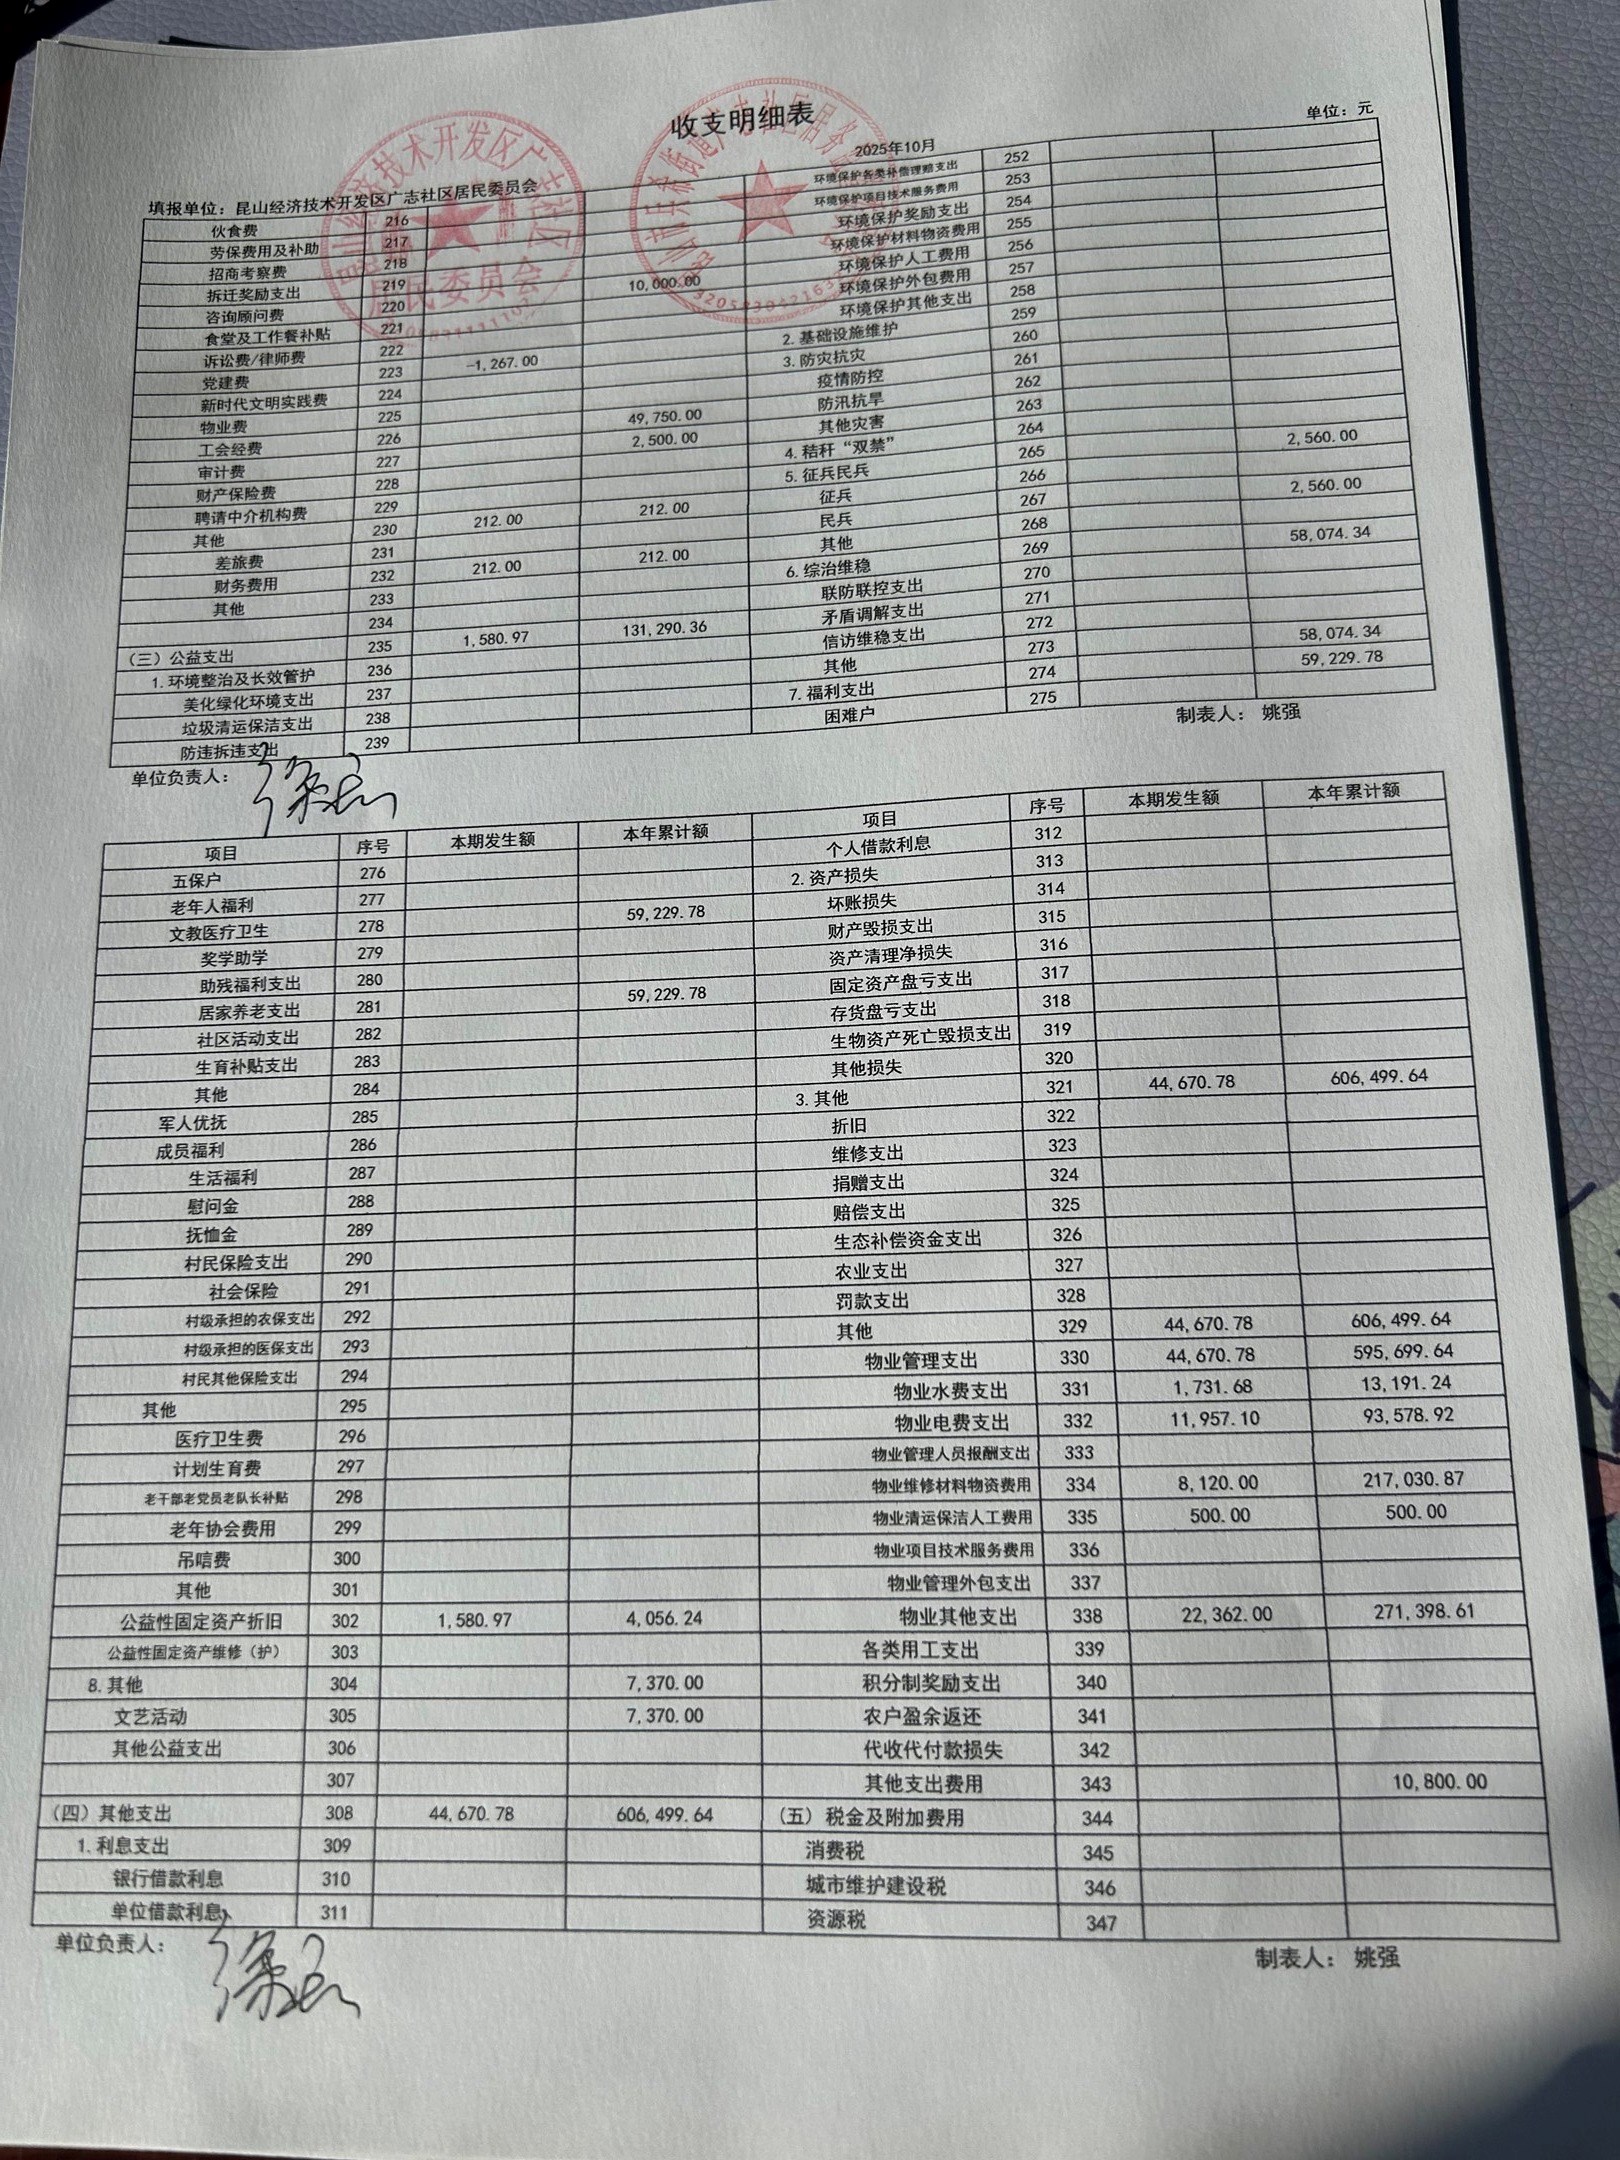 收支明细表
2025年10月
单位：元
填报单位：昆山经济技术开发区广志社区居民委员会
伙食费 216 环境保护各类补偿理赔支出 252
劳保费用及补助 217 环境保护项目技术服务费用 253
招商考察费 218 环境保护奖励支出 254
拆迁奖励支出 219 环境保护材料物资费用 255
咨询顾问费 220 10,000.00 环境保护人工费用 256
食堂及工作餐补贴 221 环境保护外包费用 257
诉讼费/律师费 222 环境保护其他支出 258
党建费 223 -1,267.00 2.基础设施维护 259
新时代文明实践费 224 3.防灾抗灾 260
物业费 225 疫情防控 261
工会经费 226 49,750.00 防汛抗旱 262
审计费 227 2,500.00 其他灾害 263
财产保险费 228 4.秸秆“双禁” 264
聘请中介机构费 229 5.征兵民兵 265 2,560.00
其他 230 212.00 212.00 征兵 266
差旅费 231 民兵 267 2,560.00
财务费用 232 212.00 212.00 其他 268
其他 233 6.综治维稳 269 58,074.34
234 联防联控支出 270
（三）公益支出 235 1,580.97 131,290.36 矛盾调解支出 271
1.环境整治及长效管护 236 信访维稳支出 272
美化绿化环境支出 237 其他 273 58,074.34
垃圾清运保洁支出 238 7.福利支出 274 59,229.78
防违拆违支出 239 困难户 275
单位负责人： 制表人： 姚强
项目 序号 本期发生额 本年累计额 项目 序号 本期发生额 本年累计额
五保户 276 个人借款利息 312
老年人福利 277 2.资产损失 313
文教医疗卫生 278 59,229.78 坏账损失 314
奖学助学 279 财产毁损支出 315
助残福利支出 280 资产清理净损失 316
居家养老支出 281 59,229.78 固定资产盘亏支出 317
社区活动支出 282 存货盘亏支出 318
生育补贴支出 283 生物资产死亡毁损支出 319
其他 284 其他损失 320
军人优抚 285 3.其他 321 44,670.78 606,499.64
成员福利 286 折旧 322
生活福利 287 维修支出 323
慰问金 288 捐赠支出 324
抚恤金 289 赔偿支出 325
村民保险支出 290 生态补偿资金支出 326
社会保险 291 农业支出 327
村级承担的农保支出 292 罚款支出 328
村级承担的医保支出 293 其他 329 44,670.78 606,499.64
村民其他保险支出 294 物业管理支出 330 44,670.78 595,699.64
其他 295 物业水费支出 331 1,731.68 13,191.24
医疗卫生费 296 物业电费支出 332 11,957.10 93,578.92
计划生育费 297 物业管理人员报酬支出 333
老干部老党员老队长补贴 298 物业维修材料物资费用 334 8,120.00 217,030.87
老年协会费用 299 物业清运保洁人工费用 335 500.00 500.00
吊唁费 300 物业项目技术服务费用 336
其他 301 物业管理外包支出 337
公益性固定资产折旧 302 1,580.97 4,056.24 物业其他支出 338 22,362.00 271,398.61
公益性固定资产维修（护） 303 各类用工支出 339
8.其他 304 7,370.00 积分制奖励支出 340
文艺活动 305 7,370.00 农户盈余返还 341
其他公益支出 306 代收代付款损失 342
307 其他支出费用 343 10,800.00
（四）其他支出 308 44,670.78 606,499.64 （五）税金及附加费用 344
1.利息支出 309 消费税 345
银行借款利息 310 城市维护建设税 346
单位借款利息 311 资源税 347
单位负责人： 制表人： 姚强